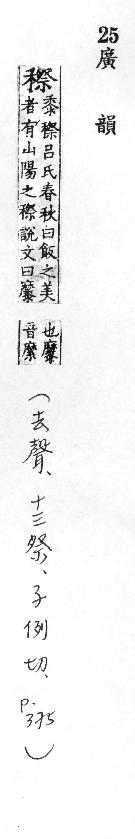 25廣韻
穄
黍穄呂氏春秋曰飯之美
者有山陽之穄說文曰䵚
也䵚
音縻
(去聲、十三祭、子例切、p.375)